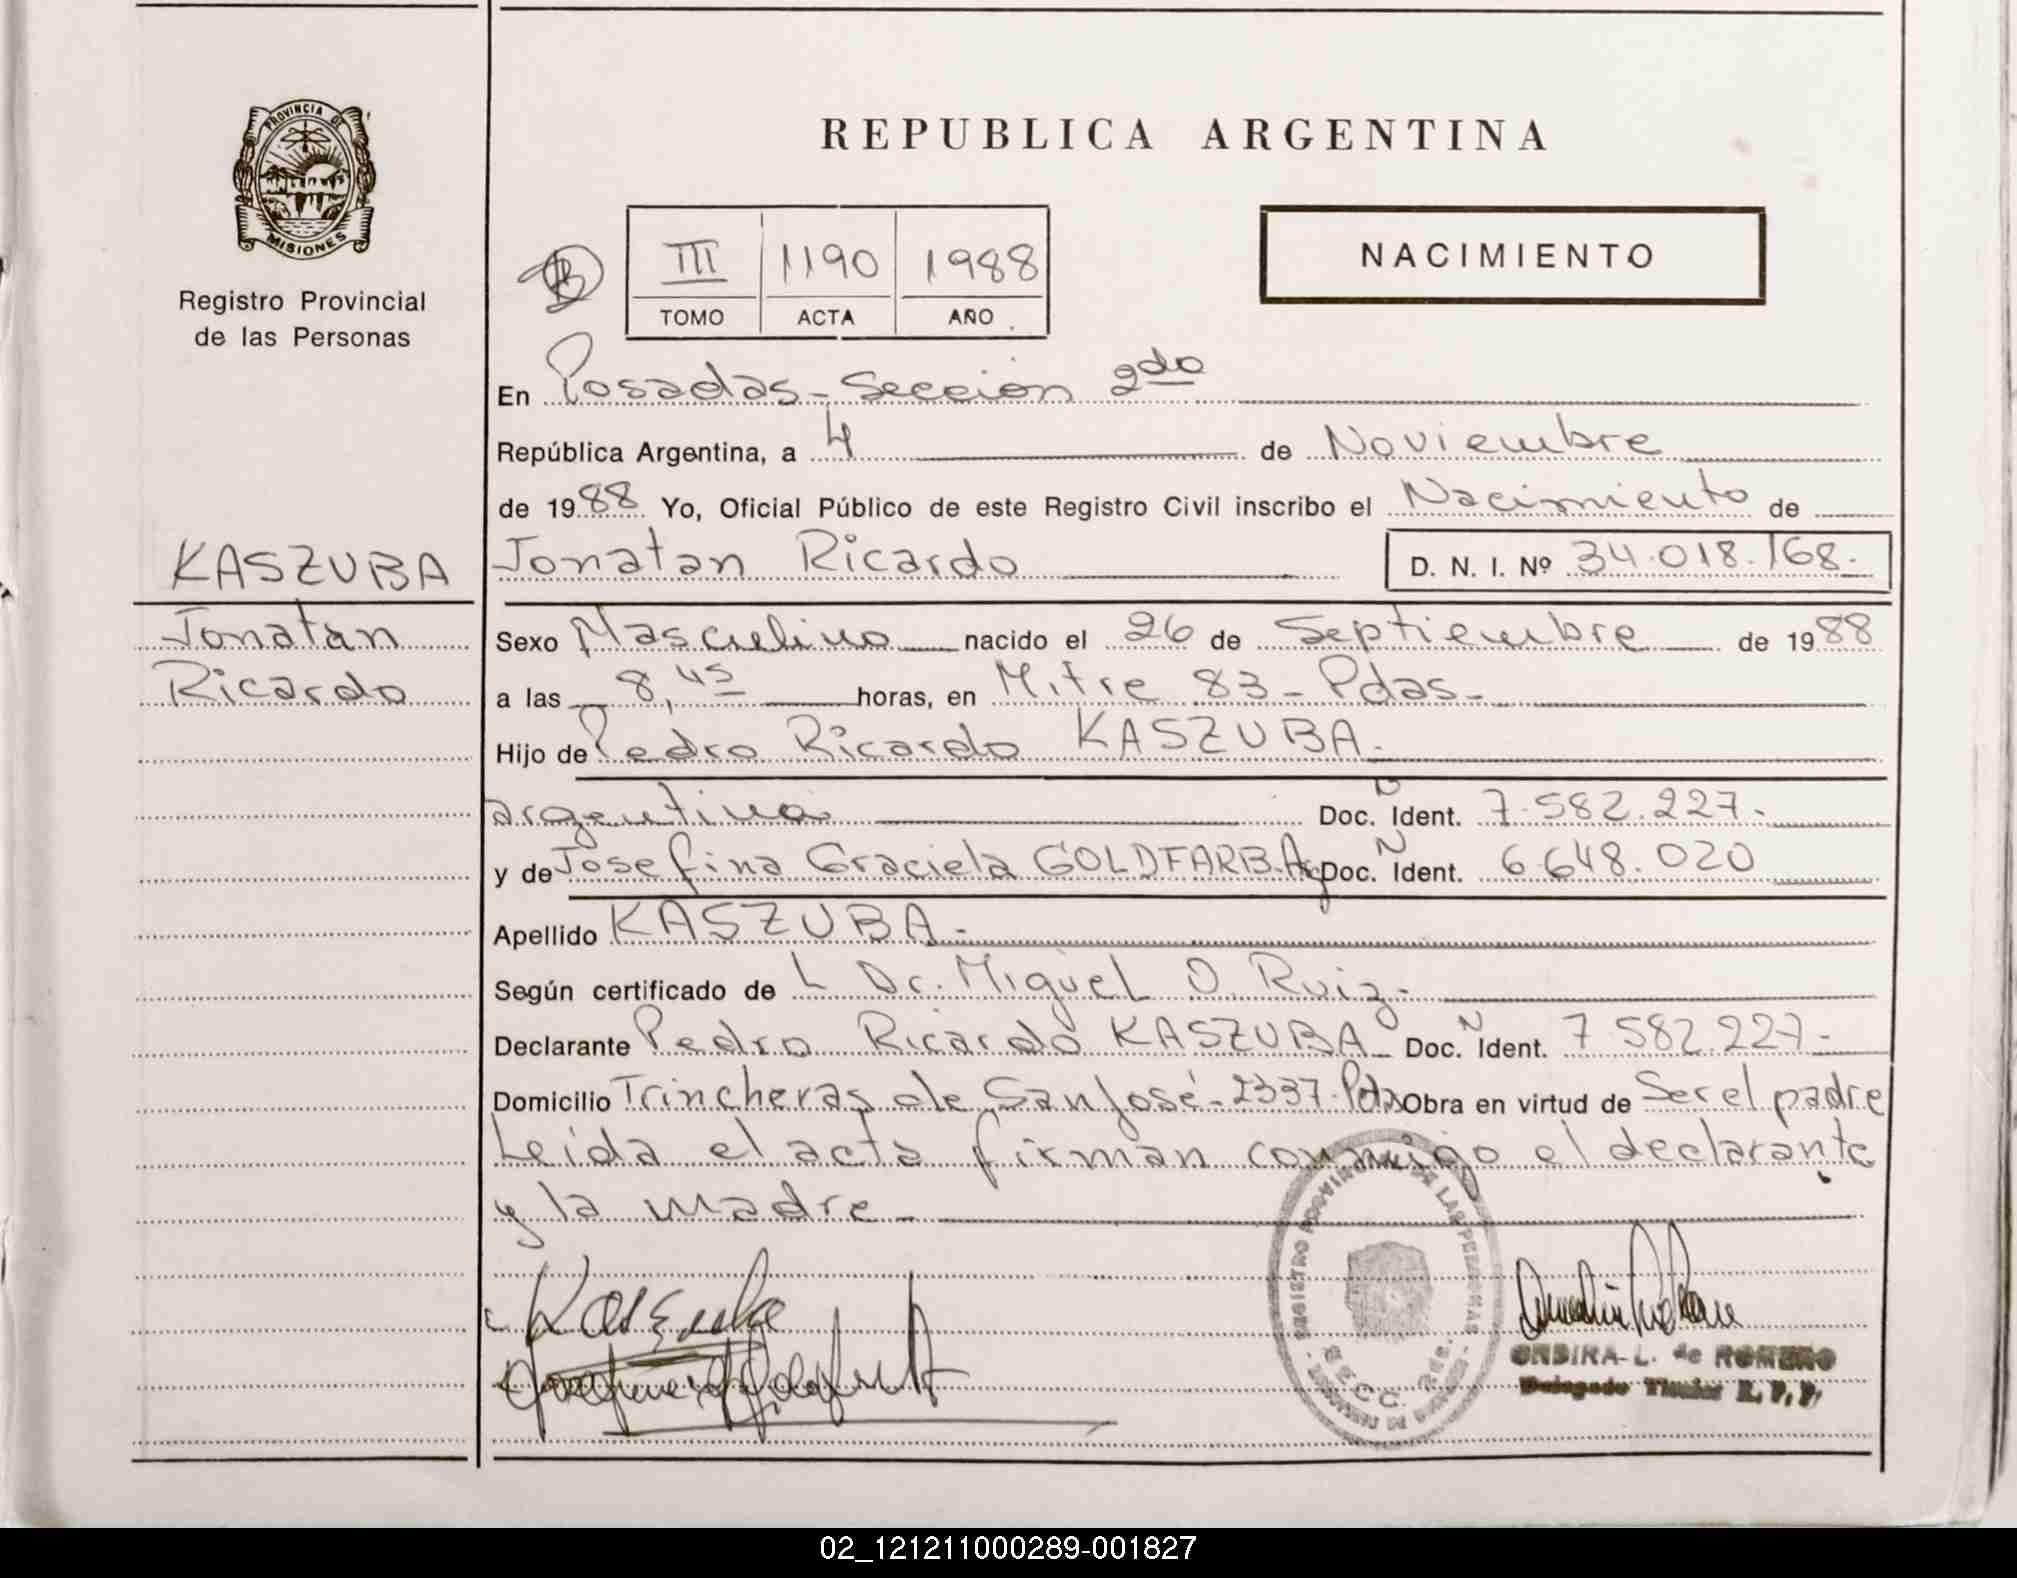 PROVINCIA DE
MISIONES
Registro Provincial
de las Personas
KASZUBA
Jonatan
Ricardo
REPUBLICA ARGENTINA
III 1190 1988
TOMO ACTA AÑO
NACIMIENTO
En Posadas - Sección 2do
República Argentina, a 4 de Noviembre
de 1988 Yo, Oficial Público de este Registro Civil inscribo el Nacimiento de
Jonatan Ricardo D. N. I. Nº 34.018.168.-
Sexo Masculino nacido el 26 de Septiembre de 1988
a las 8,45 horas, en Mitre 83 - Pdas -
Hijo de Pedro Ricardo KASZUBA.-
argentina Doc. N Ident. 7.582.227.-
y de Josefina Graciela GOLDFARB. Arg Doc. N Ident. 6.648.020
Apellido KASZUBA.-
Según certificado de L Dr. Miguel O. Ruiz.-
Declarante Pedro Ricardo KASZUBA - Doc. N Ident. 7.582.227.-
Domicilio Trincheras de San José - 2337 - Pdas Obra en virtud de Ser el padre
Leída el acta firman conmigo el declarante
y la madre -
Kaszuba
REGISTRO PROVINCIAL DE LAS PERSONAS
SECC. 2da.
ONDIRA L. de ROMERO
Delegado Titular R. P. P.
02_121211000289-001827